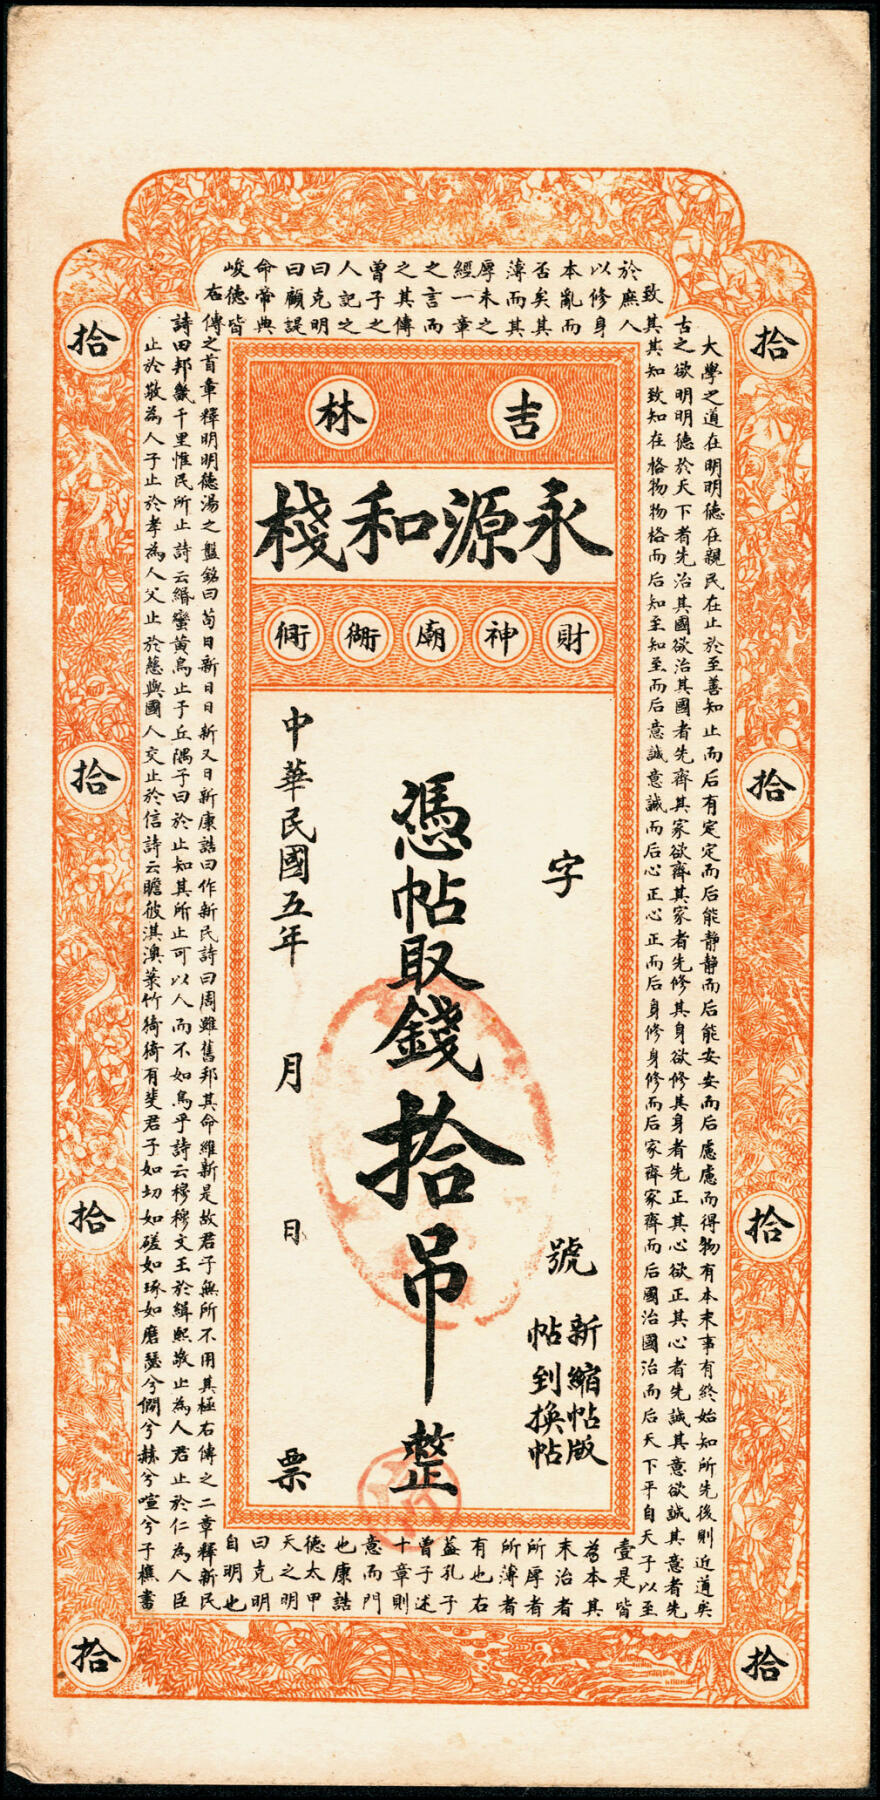 吉林
永源和棧
財神廟衚衕
字
號
新縮帖版
帖到換帖
憑帖取錢拾吊整
中華民國五年 月 日 票
拾
拾
拾
拾
拾
拾
拾
拾
大學之道在明明德在親民在止於至善知止而后有定定而后能靜靜而后能安安而后慮慮而得物有本末事有終始知所先後則近道矣
古之欲明明德於天下者先治其國欲治其國者先齊其家欲齊其家者先修其身欲修其身者先正其心欲正其心者先誠其意欲誠其意者先
致其其知致知在格物物格而后知至知至而后意誠意誠而后心正心正而后身修身修而后家齊家齊而后國治國治而后天下平自天子以至
於庶人
以修身
本亂而
否矣其
薄而其
厚未之
經一章
之言而
之其傳
曾子之
人記之
曰克明
曰顧諟
命帝典
峻德皆
右傳之首章釋明明德湯之盤銘曰苟日新日日新又日新康誥曰作新民詩曰周雖舊邦其命維新是故君子無所不用其極右傳之二章釋新民
詩曰邦畿千里惟民所止詩云緡蠻黃鳥止于丘隅子曰於止知其所止可以人而不如鳥乎詩云穆穆文王於緝熙敬止為人君止於仁為人臣
止於敬為人子止於孝為人父止於慈與國人交止於信詩云瞻彼淇澳菉竹猗猗有斐君子如切如磋如琢如磨瑟兮僩兮赫兮喧兮子樵書
壹是皆
為本其
末治者
所厚者
所薄者
有也右
蓋孔子
曾子述
十章則
意而門
也康誥
德太甲
天之明
曰克明
自明也